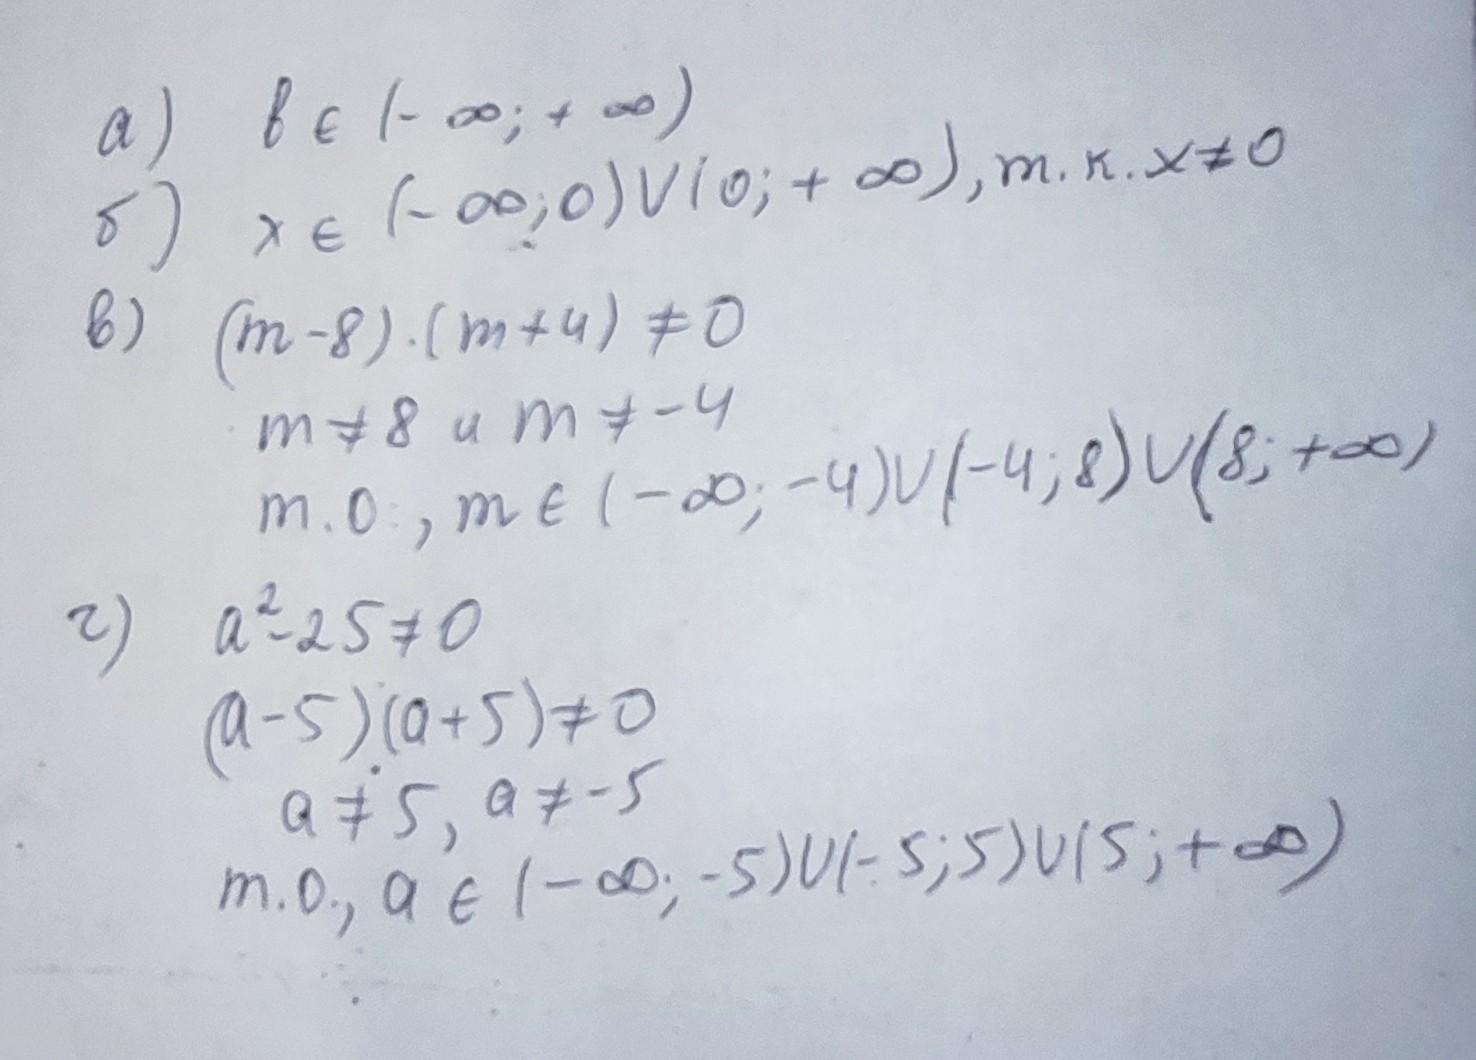 а) b ∈ (-∞; +∞)
б) x ∈ (-∞; 0) ∪ (0; +∞), т.к. x≠0
в) (m-8)·(m+4) ≠ 0
m ≠ 8 и m ≠ -4
т.о., m ∈ (-∞; -4) ∪ (-4; 8) ∪ (8; +∞)
г) a²-25≠0
(a-5)(a+5)≠0
a ≠ 5, a ≠ -5
т.о., a ∈ (-∞; -5) ∪ (-5; 5) ∪ (5; +∞)